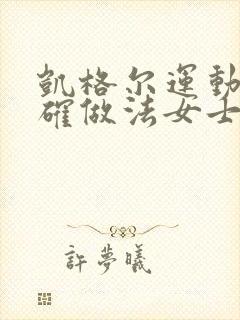 凱格尔運動
確做法女士
許夢曦